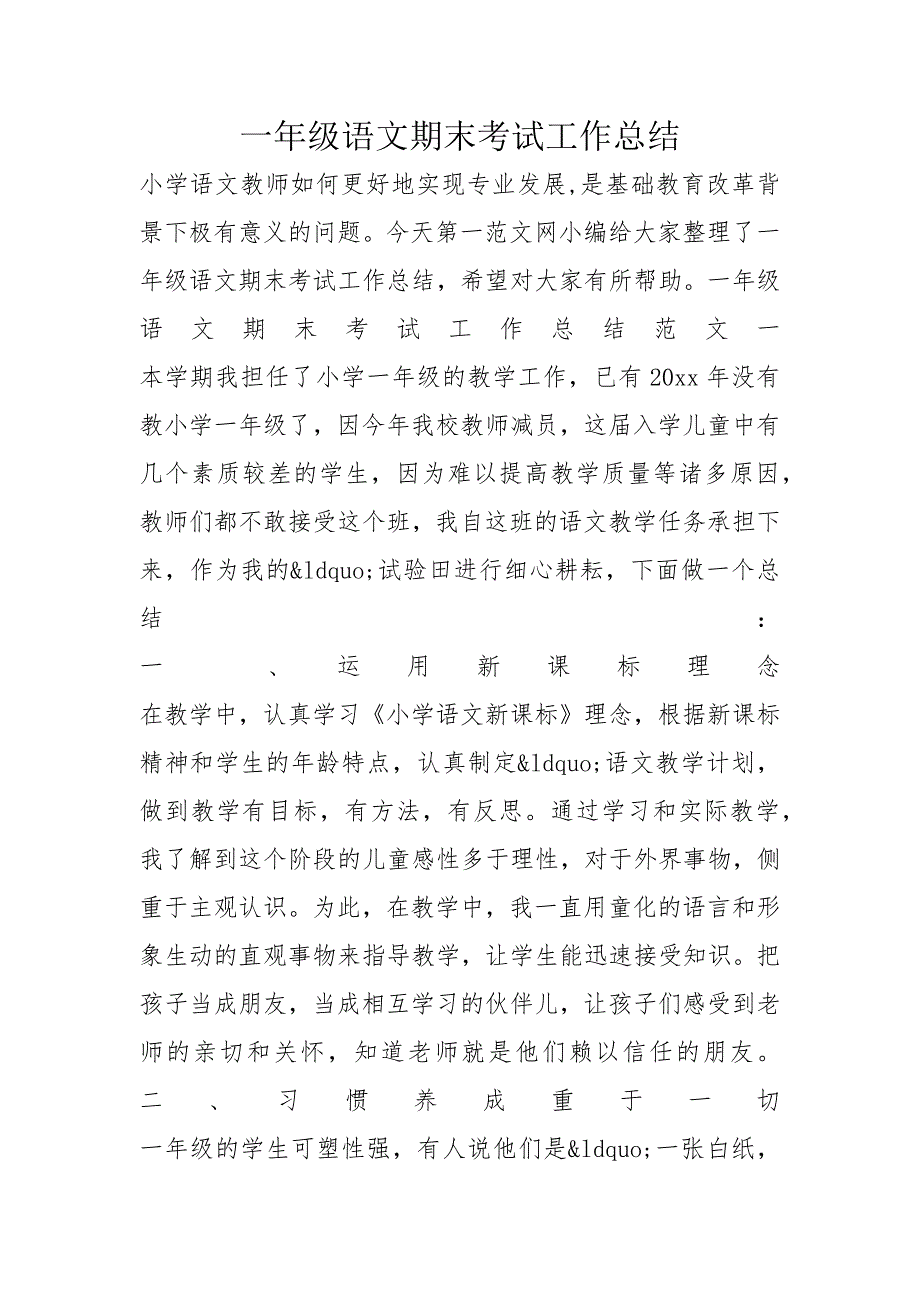 一年级语文期末考试工作总结
小学语文教师如何更好地实现专业发展,是基础教育改革背
景下极有意义的问题。今天第一范文网小编给大家整理了一
年级语文期末考试工作总结，希望对大家有所帮助。一年级
语文期末考试工作总结范文一
本学期我担任了小学一年级的教学工作，已有 20xx 年没有
教小学一年级了，因今年我校教师减员，这届入学儿童中有
几个素质较差的学生，因为难以提高教学质量等诸多原因，
教师们都不敢接受这个班，我自这班的语文教学任务承担下
来，作为我的&ldquo;试验田进行细心耕耘，下面做一个总
结：
一、运用新课标理念
在教学中，认真学习《小学语文新课标》理念，根据新课标
精神和学生的年龄特点，认真制定&ldquo;语文教学计划，
做到教学有目标，有方法，有反思。通过学习和实际教学，
我了解到这个阶段的儿童感性多于理性，对于外界事物，侧
重于主观认识。为此，在教学中，我一直用童化的语言和形
象生动的直观事物来指导教学，让学生能迅速接受知识。把
孩子当成朋友，当成相互学习的伙伴儿，让孩子们感受到老
师的亲切和关怀，知道老师就是他们赖以信任的朋友。
二、习惯养成重于一切
一年级的学生可塑性强，有人说他们是&ldquo;一张白纸，